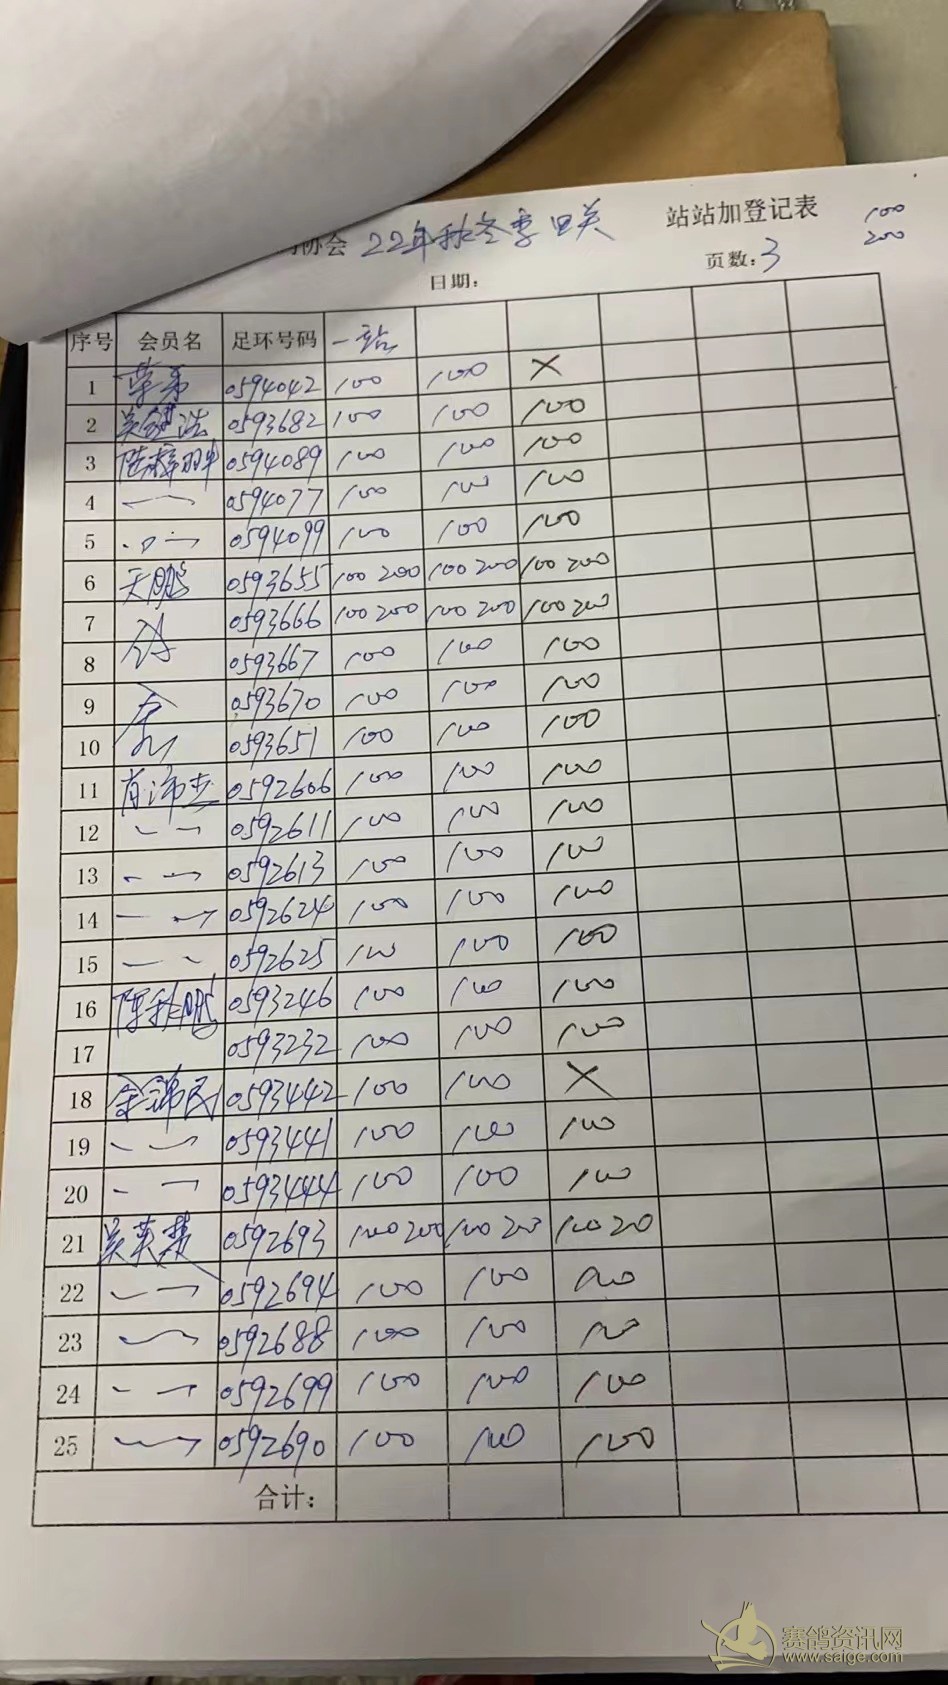 协会 22年秋冬季四关 站站加登记表 100
200
日期: 页数:3
序号 会员名 足环号码 一站
1 0594042 100 100 ×
2 吴健浩 0593682 100 100 100
3 陆梓明 0594089 100 100 100
4 〃 0594077 100 100 100
5 〃 0594099 100 100 100
6 天鹏 0593655 100 200 100 200 100 200
7 0593666 100 200 100 200 100 200
8 0593667 100 100 100
9 0593670 100 100 100
10 0593651 100 100 100
11 肖沛杰 0592606 100 100 100
12 〃 0592611 100 100 100
13 〃 0592613 100 100 100
14 〃 0592624 100 100 100
15 〃 0592625 100 100 100
16 陈秋鹏 0593246 100 100 100
17 0593232 100 100 100
18 金锦民 0593442 100 100 ×
19 〃 0593441 100 100 100
20 〃 0593444 100 100 100
21 吴英慧 0592693 100 200 100 200 100 200
22 〃 0592694 100 100 100
23 〃 0592688 100 100 100
24 〃 0592699 100 100 100
25 〃 0592690 100 100 100
合计:
赛鸽资讯网
www.saige.com